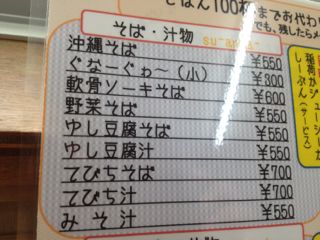 ごはん100杯までお代わり
でも、残したらメ
そば・汁物
su-ama-
沖縄そば ¥550
ぐなーぐゎ～(小) ¥300
軟骨ソーキそば ¥600
野菜そば ¥550
ゆし豆腐そば ¥550
ゆし豆腐汁 ¥550
てびちそば ¥700
てびち汁 ¥700
みそ汁 ¥550
稲荷か
ジューシー
しーぶん
(サービス)